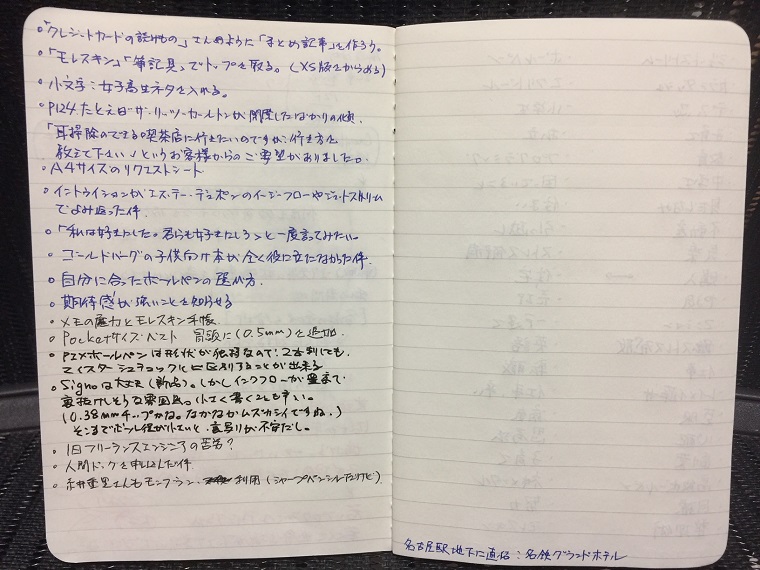 ・「クレジットカードの読みもの」さんのように「まとめ記事」を作ろう。
・「モレスキン」「筆記具」でトップを取る。(XS版でからめる)
・小文字:女子高生ネタを入れる。
・P124.たとえばザ・リッツ・カールトンが開園したばかりの頃、
「耳掃除のできる喫茶店に行きたいのですが、行き方を
教えて下さい」というお客様からのご要望がありました。
・A4サイズのリクエストシート
・イントゥイションがエス・テー・デュポンのイージーフローやジェットストリーム
でよみ返った件.
・「私は好きにした。君らも好きにしろ」と一度言ってみたい。
・ゴールドバーグの子供向け本が全く役に立たなかった件.
・自分に合ったボールペンの選び方.
・期待感が強いことを知らせる
・メモの魔力とモレスキン手帳.
・Pocketサイズ・ベスト 骨販に(0.5mm)を追加.
・ボールペンは形状が独特なので、2本刺しても
マイスターシュテュックに区別することが出来る
・Signoは大丈夫(新品)。しかしインクフローが豊富で
裏抜けしそうな雰囲気。小さく書くことも辛い。
(0.38mmチップかな。なかなかムズカシイですね.)
そこまでボール径が小さいと、裏写りが不安だし。
・1日フリーランスエンジニアの苦労?
・人間ドックを申し込んだ件.
・糸井重里さんもモンブラン 利用(シャープペンシルだけど)
名古屋駅地下に直結:名鉄グランドホテル